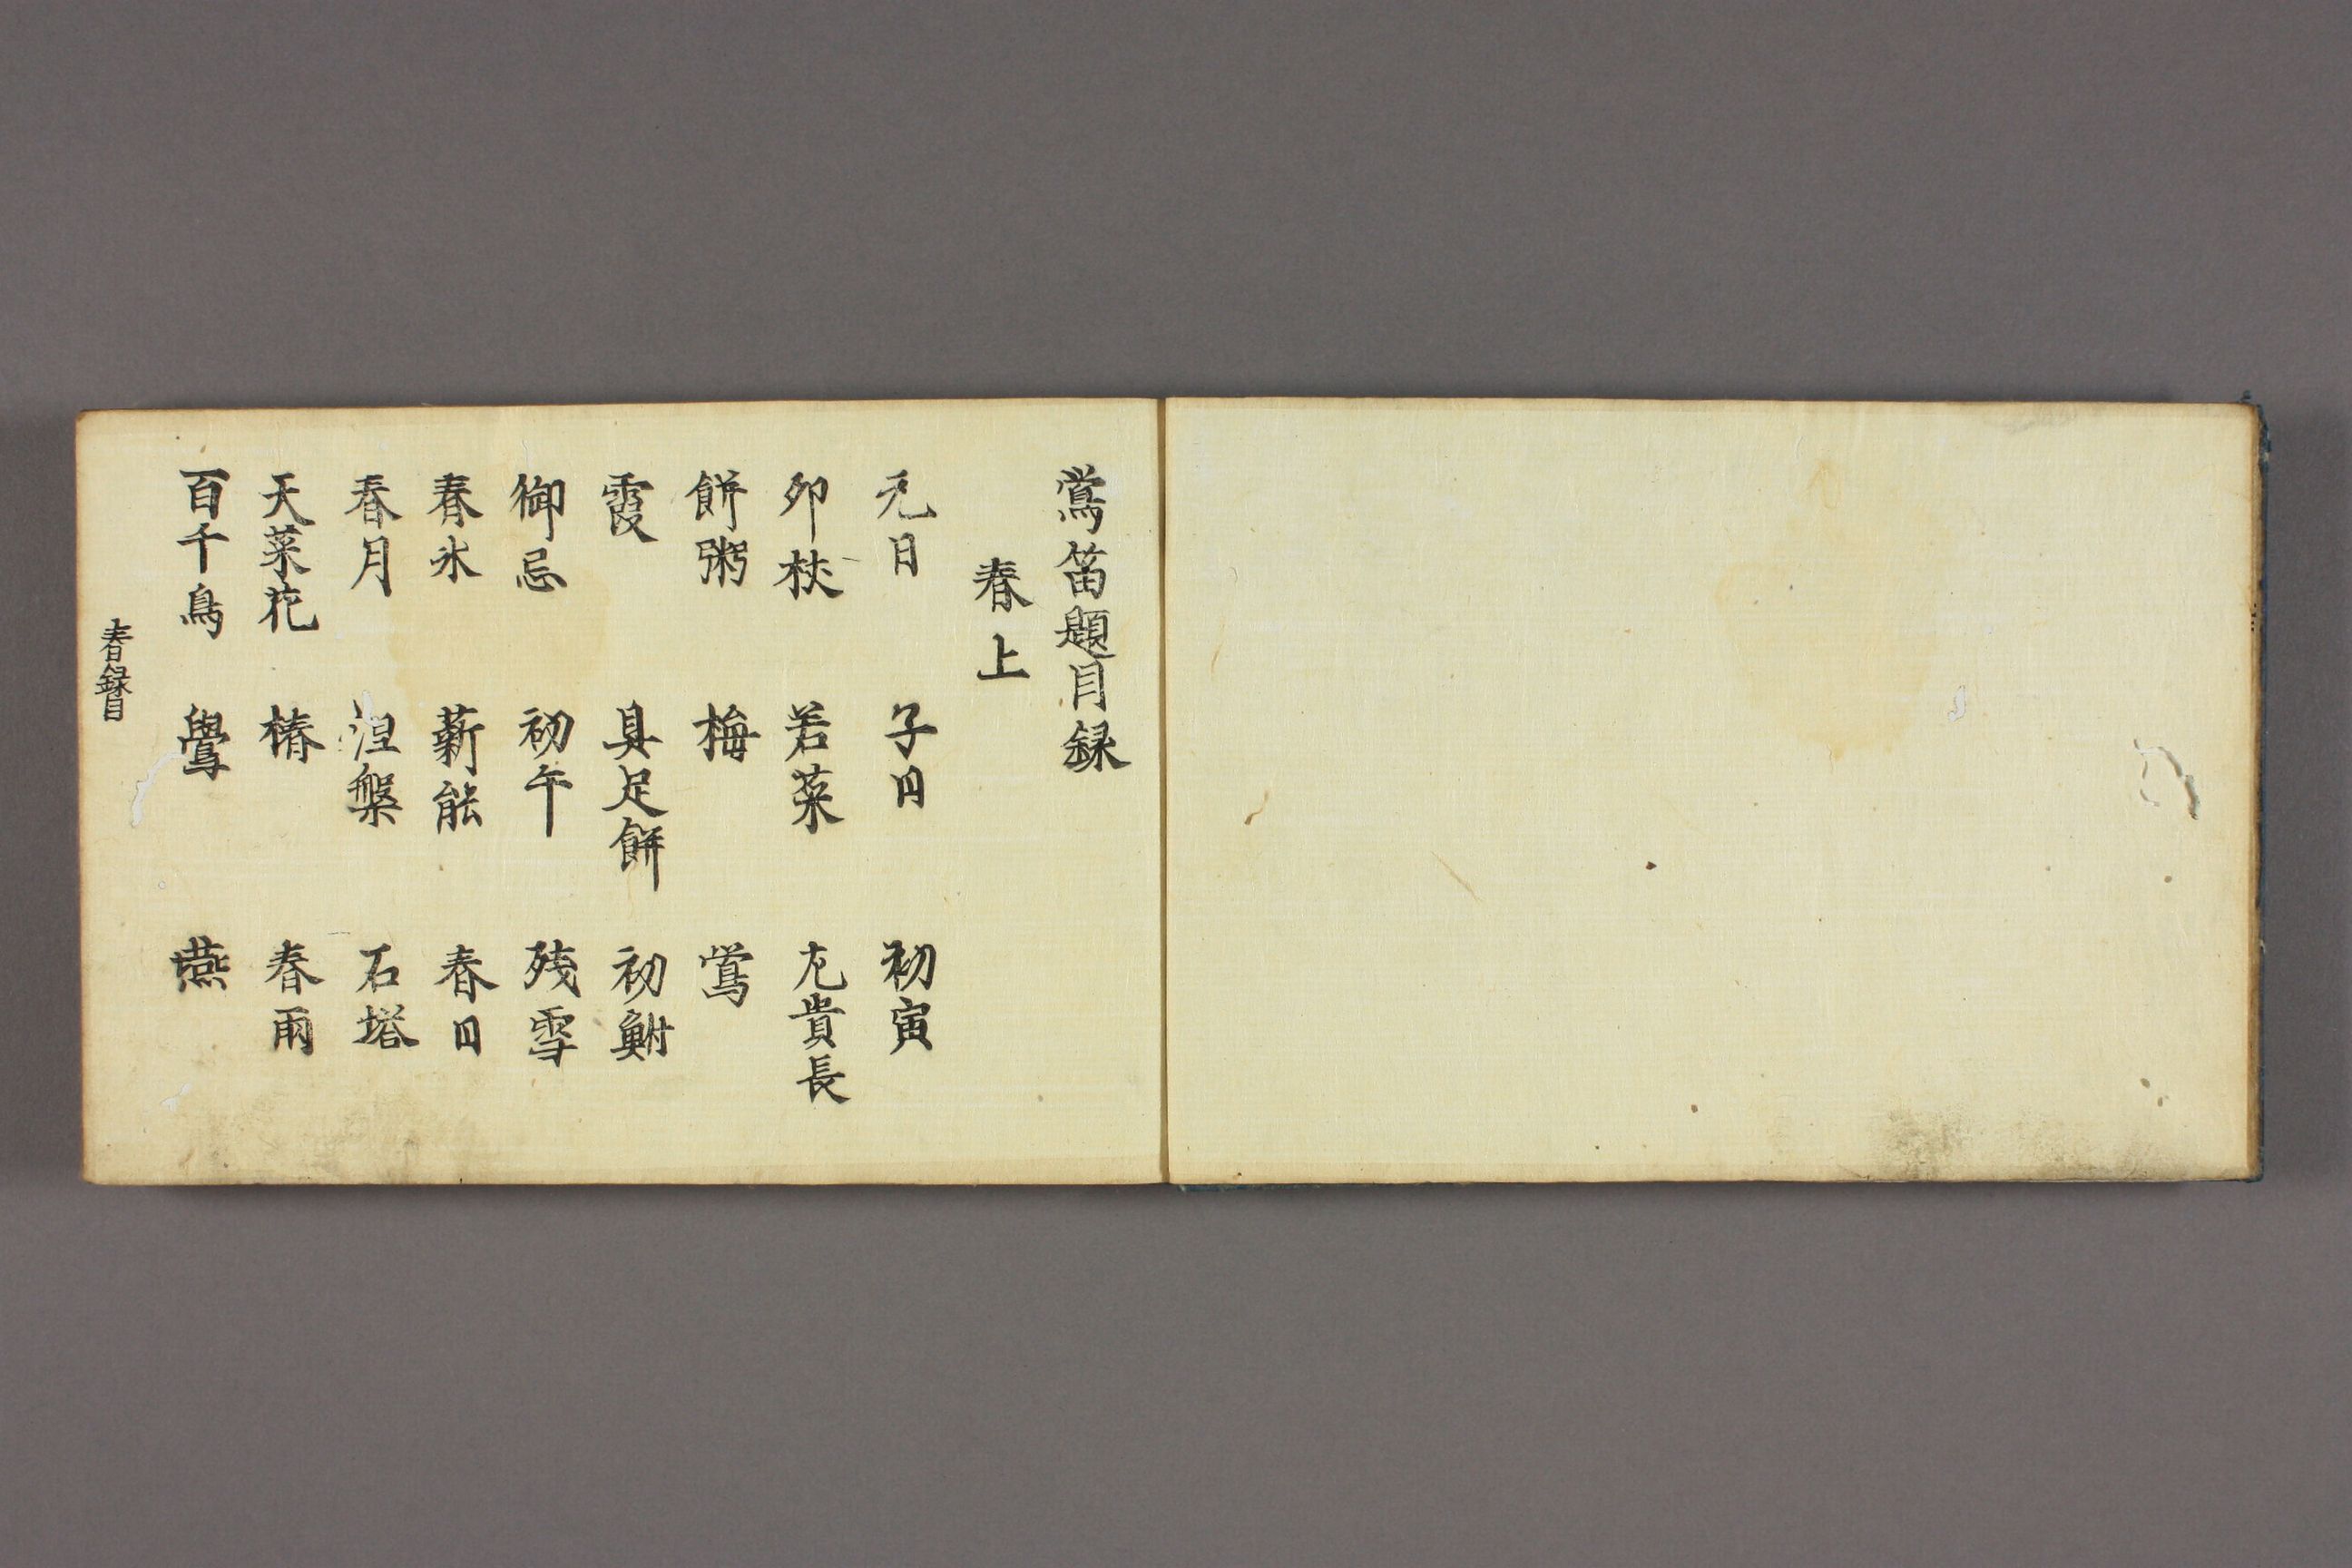 鶯笛題目録
春上
元日 子日 初寅
卯杖 若菜 左貴長
餅粥 梅 鶯
霞 具足餅 初鮒
御忌 初午 残雪
春氷 薪能 春日
春月 涅槃 石塔
天菜花 椿 春雨
百千鳥 鷽 燕
春録目